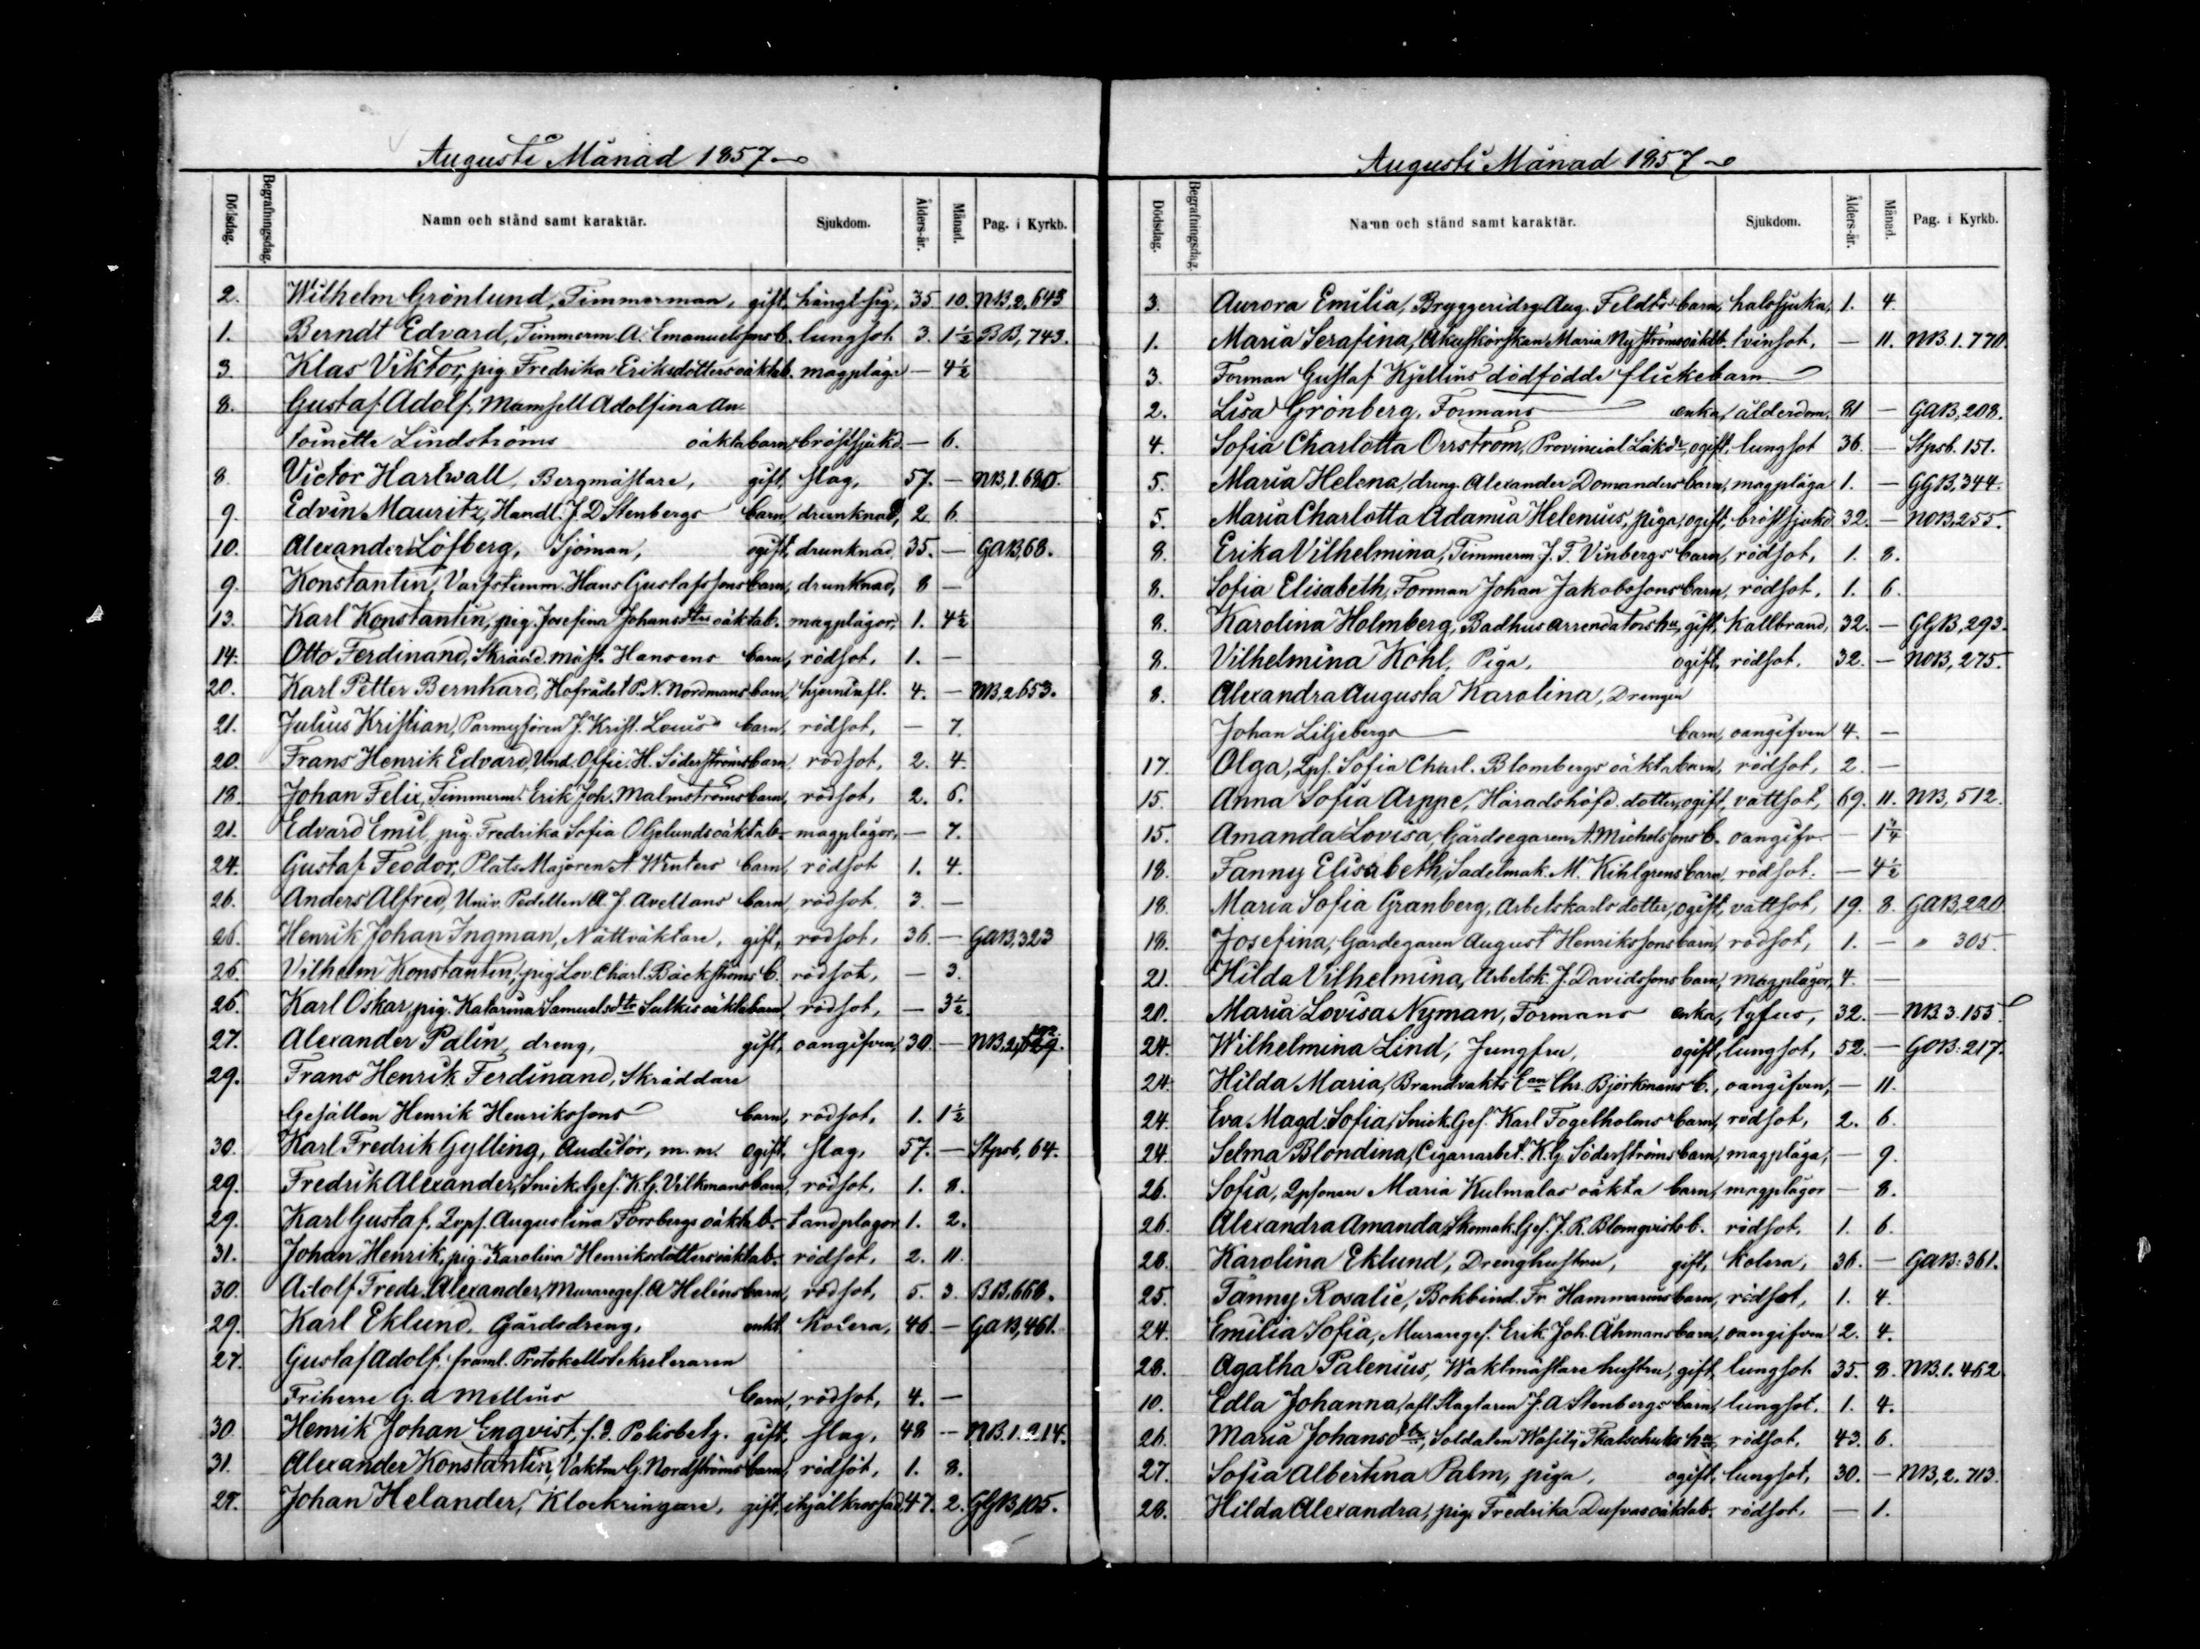 Augusti Månad 1857
Dödsdag. Begrafningsdag. Namn och stånd samt karaktär. Sjukdom. Ålders-år. Månad. Pag. i Kyrkb.
2. Wilhelm Grönlund, Timmerman, gift, hängt sig, 35 10. NB,2,643
1. Berndt Edvard, Timmerm A. Emanuelssons b. lungsot 3. 1½ BB, 743.
3. Klas Viktor, pig. Fredrika Eriksdotters oäkta b. magplågr — 4½
8. Gustaf Adolf, Mamsell Adolfina An-
toinette Lindströms oäkta barn, bröstsjukd. — 6.
8. Victor Hartwall, Bergmästare, gift, slag, 57. — NB,1.680.
9. Edvin Mauritz, Handl. J. D Stenbergs barn, drunknad, 2 6.
10. Alexander Löfberg, Sjöman, ogift, drunknad, 35. — GAB,68.
9. Konstantin, Varfstimm. Hans Gustafssons barn, drunknad, 8 —
13. Karl Konstantin, pig. Josefina Johansdtrs oäkta b. magplågor, 1. 4½
14. Otto Ferdinand, Skrädd. mäst. Hansens barn, rödsot, 1. —
20. Karl Petter Bernhard, Hofrådet P. N. Nordmans barn, hjerninfl. 4. — NB,2 653.
21. Julius Kristian, J. Krist. Louis barn, rödsot, — 7.
20. Frans Henrik Edvard, Und. Offic. H. Söderströms barn, rödsot, 2. 4.
18. Johan Felix, Timmerm. Erik Joh. Malmströms barn, rödsot, 2. 6.
21. Edvard Emil, pig. Fredrika Sofia Öljelunds oäkta b. magplågor, — 7.
24. Gustaf Feodor, Plats Majoren A. Winters barn, rödsot 1. 4.
26. Anders Alfred, Univ. Pedellen A. J. Avellans barn, rödsot. 3. —
26. Henrik Johan Ingman, Nattväktare, gift, rödsot, 36. — GAB,323
26. Vilhelm Konstantin, pig Lov. Charl. Bäckströms b. rödsot, — 3.
26. Karl Oskar, pig. Katarina Samuelsdtr Sulkis oäkta barn, rödsot, — 3½
27. Alexander Palin, dreng, gift, oangifven, 30. — NB,2,
29. Frans Henrik Ferdinand, Skräddare
Gesällen Henrik Henrikssons barn, rödsot, 1. 1½
30. Karl Fredrik Gylling, Auditör, m. m. ogift, slag, 57. — Stpsb, 64.
29. Fredrik Alexander, Snick. Ges. K. G. Vilkmans barn, rödsot, 1. 8.
29. Karl Gustaf, Augustina Forsbergs oäkta b. tandplågor 1. 2.
31. Johan Henrik, pig. Karolina Henriksdotters oäkta b. rödsot, 2. 11.
30. Adolf Fredr. Alexander, Muraregef. A Helins barn, rödsot, 5. 3. BB,668.
29. Karl Eklund, Gårdsdreng, enkl. Kolera, 46. — GAB,461.
27. Gustaf Adolf, framl. Protokollsekreteraren
Friherre G. A Mellins barn, rödsot, 4. —
30. Henrik Johan Engvist, f. d. Polisbetj. gift, slag, 48 — NB.1.214.
31. Alexander Konstantin, Vaktm G. Nordströms barn, rödsot, 1. 8.
27. Johan Helander, Klockringare, gift, ihjälkrossad, 47. 2. GGB,105.
Augusti Månad 1857
Dödsdag. Begrafningsdag. Namn och stånd samt karaktär. Sjukdom. Ålders-år. Månad. Pag. i Kyrkb.
3. Aurora Emilia, Bryggeridrg Aug. Feldts barn, halssjuka, 1. 4.
1. Maria Serafina, Akuskörskan Maria Nyströms oäkta b. tvinsot, — 11. NB.1.770.
3. Forman Gustaf Kjellins dödfödde flickebarn
2. Lisa Grönberg, Formans enka, ålderdom, 81 — GAB,208.
4. Sofia Charlotta Orrström, Provincial Läk dr, ogift, lungsot 36. — Stpsb. 151.
5. Maria Helena, dreng. Alexander Domanders barn, magplåga 1. — GGB,344.
5. Maria Charlotta Adamia Helenius, piga, ogift, bröstsjukd 32. — NOB,255.
8. Erika Vilhelmina, Timmerm. J. F. Vinbergs barn, rödsot, 1. 8.
8. Sofia Elisabeth, Forman Johan Jakobssons barn, rödsot, 1. 6.
8. Karolina Holmberg, Badhusarrendators hu, gift, kallbrand, 32. — GGB,293.
8. Vilhelmina Köhl, Piga, ogift, rödsot, 32. — NOB,275.
8. Alexandra Augusta Karolina, Drengen
Johan Liljebergs barn, oangifven 4. —
17. Olga, Qps. Sofia Charl. Blombergs oäkta barn, rödsot, 2. —
15. Anna Sofia Arppe, Häradshöfd. dotter, ogift, vattsot, 69. 11. NB, 512.
15. Amanda Lovisa, Gårdsegaren A. Michelssons b. oangifv. — 1¼
18. Fanny Elisabeth, Sadelmak. M. Kihlgrens barn, rödsot. — 4½
18. Maria Sofia Granberg, Arbetskarls dotter, ogift, vattsot, 19. 8. GAB,220.
18. Josefina, Gårdegaren August Henrikssons barn, rödsot, 1. — " 305.
21. Hilda Vilhelmina, Arbetsk. J. Davidssons barn, magplågor, 4. —
20. Maria Lovisa Nyman, Formans enka, tyfus, 32. — NB.3.155.
24. Wilhelmina Lind, Jungfru, ogift, lungsot, 52. — GOB:217.
24. Hilda Maria, Brandvakts Ean Chr. Björkmans b., oangifven, — 11.
24. Eva Magd. Sofia, Snick. Ges. Karl Fogelholms barn, rödsot, 2. 6.
24. Selma Blondina, Cigarrarbet. K. G. Söderströms barn, magplåga, — 9.
26. Sofia, Qpsonen Maria Kulmalas oäkta barn, magplågor — 8.
26. Alexandra Amanda, Skomak. Ges. J. R. Blomqvists b. rödsot, 1. 6.
28. Karolina Eklund, Drenghustru, gift, Kolera, 36. — GAB:361.
25. Fanny Rosalie, Bokbind. Fr. Hammarins barn, rödsot, 1. 4.
24. Emilia Sofia, Murareges. Erik Joh. Åhmans barn, oangifven 2. 4.
28. Agatha Palenius, Waktmästare hustru, gift, lungsot. 35. 8. NB.1.462.
10. Edla Johanna, afl. Slagtaren J. A Stenbergs barn, lungsot, 1. 4.
26. Maria Johansdtr, Soldaten Wasilij Tkatschuks hu, rödsot, 43. 6.
27. Sofia Albertina Palm, piga, ogift, lungsot, 30. — NB,2.713.
28. Hilda Alexandra, pig. Fredrika Dufvas oäkta b. rödsot. — 1.